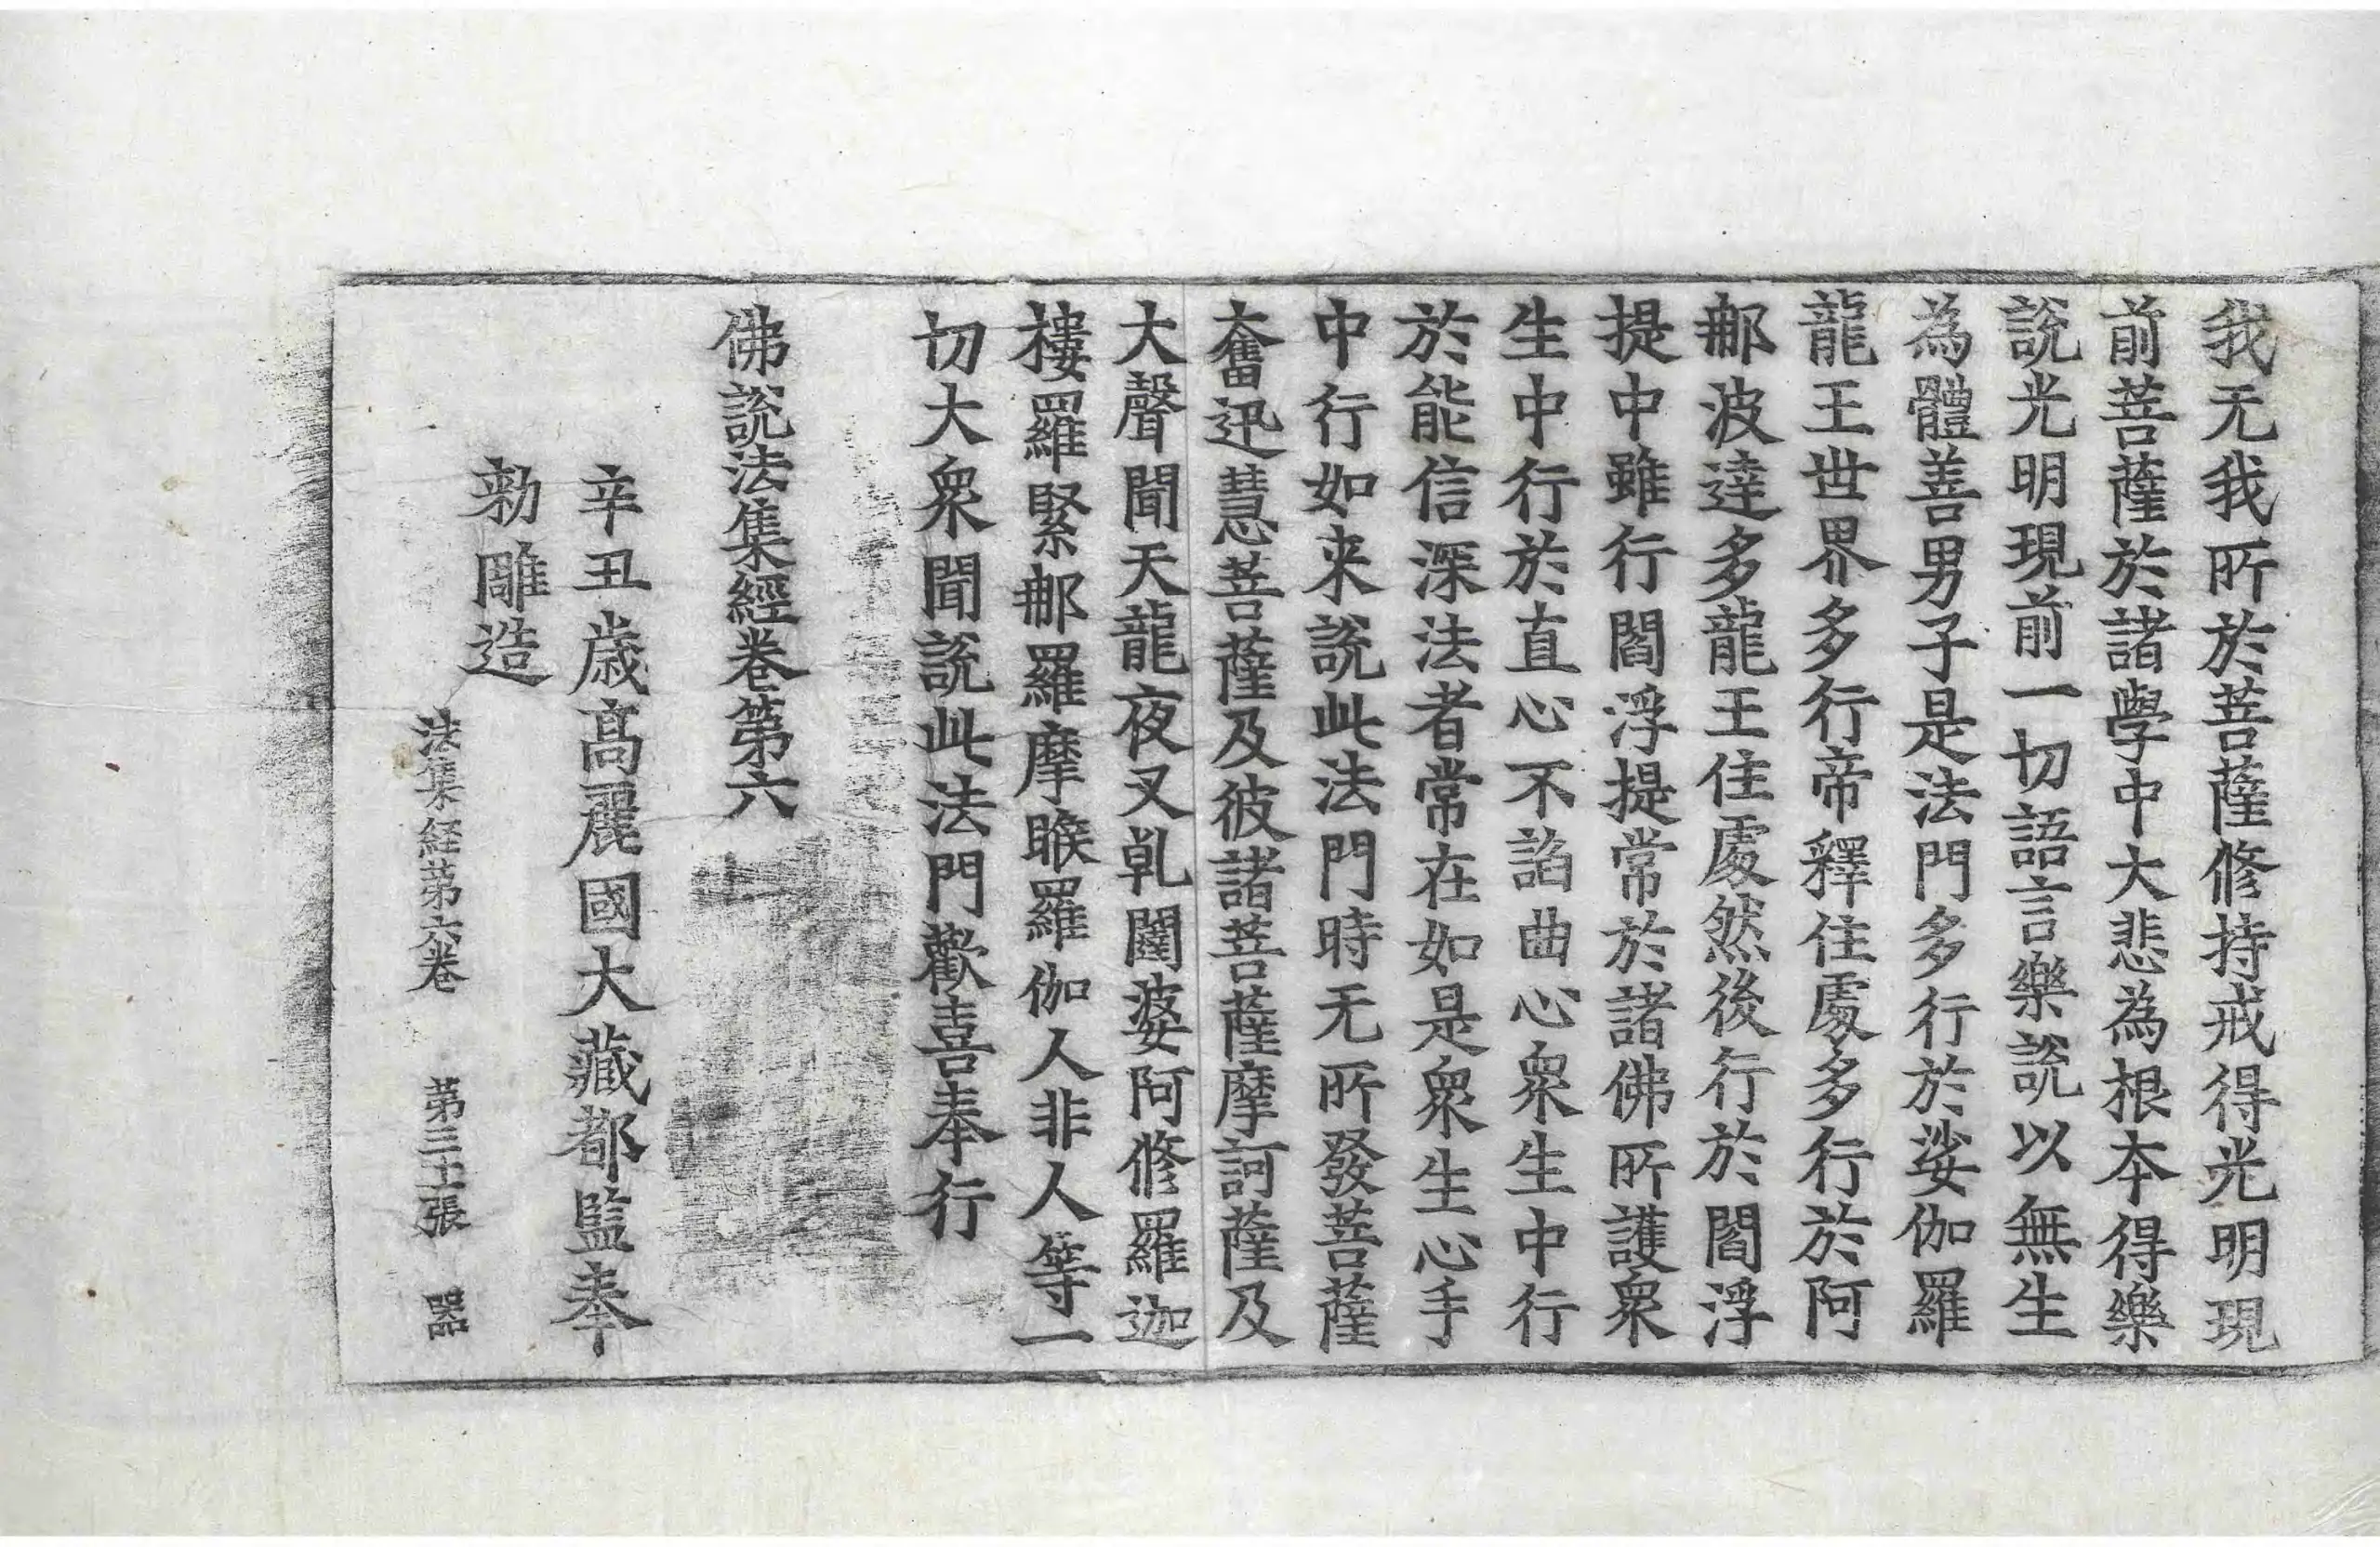 我无我所於菩薩修持戒得光明現
前菩薩於諸學中大悲為根本得樂
說光明現前一切語言樂說以無生
為體善男子是法門多行於娑伽羅
龍王世界多行帝釋住處多行於阿
那波達多龍王住處然後行於閻浮
提中雖行閻浮提常於諸佛所護衆
生中行於直心不諂曲心衆生中行
於能信深法者常在如是衆生心手
中行如来說此法門時无所發菩薩
奮迅慧菩薩及彼諸菩薩摩訶薩及
大聲聞天龍夜叉乹闥婆阿修羅迦
樓羅緊那羅摩睺羅伽人非人等一
切大衆聞說此法門歡喜奉行
佛說法集經卷第六
辛丑歲高麗國大藏都監奉
勑雕造
法集経苐六卷 苐三十張 器